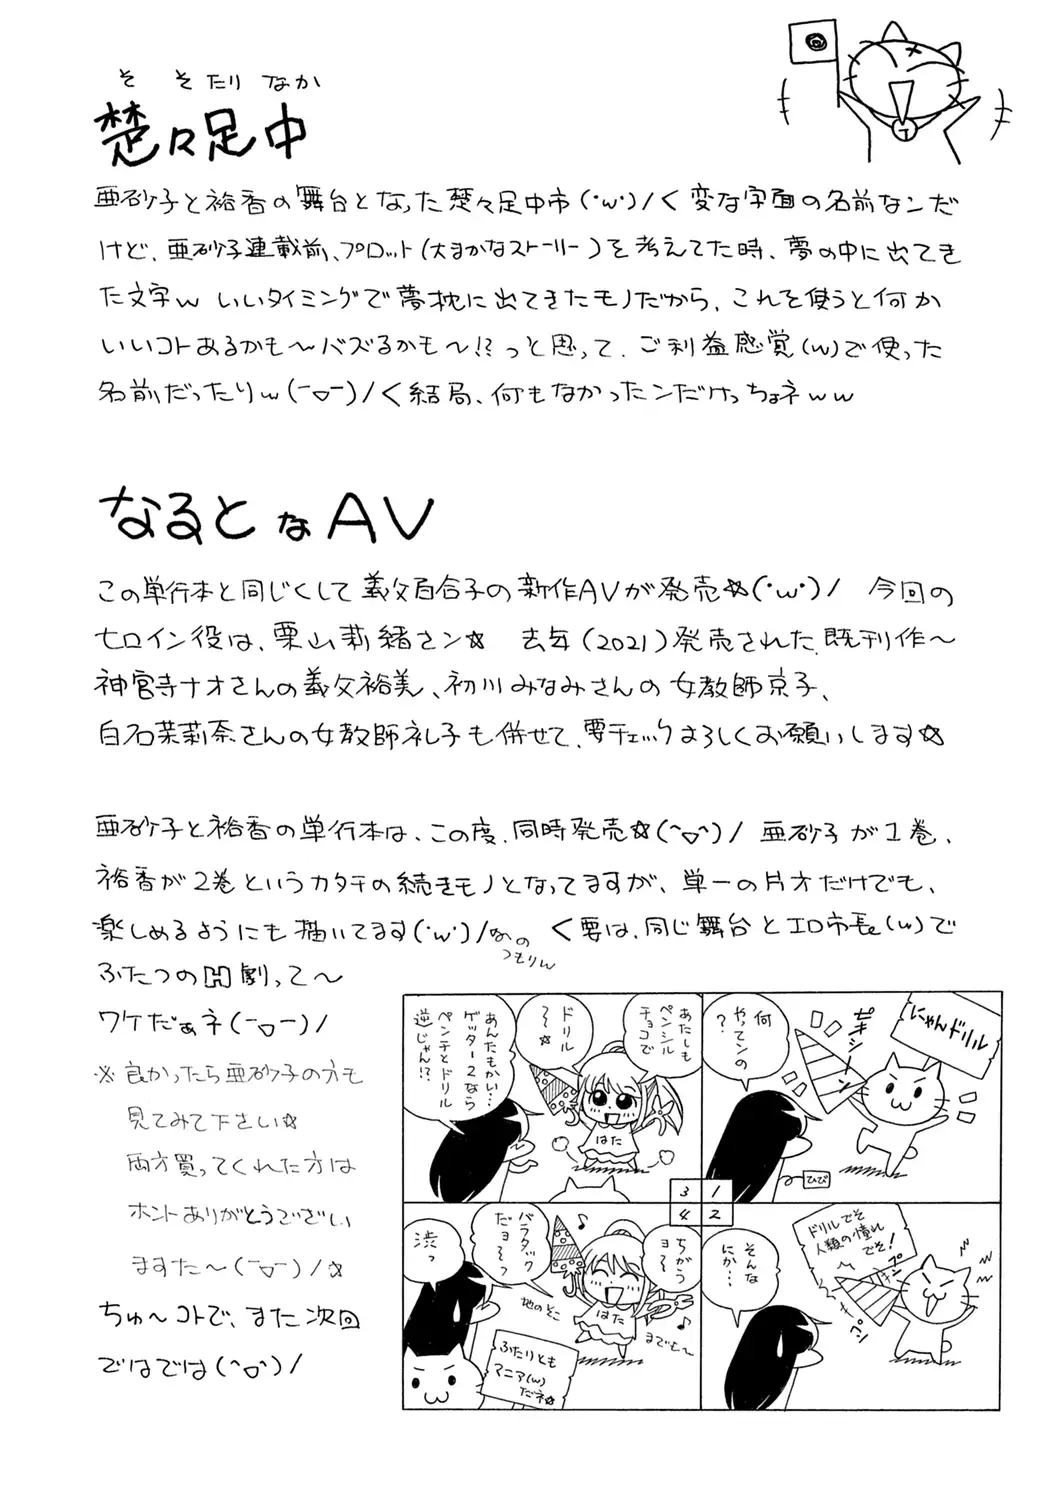 そ そ たり なか
楚々足中
亜砂子と裕香の舞台となった楚々足中市(・w・)/く変な字面の名前なンだ
けど、亜砂子連載前、プロット(大まかなストーリー)を考えてた時、夢の中に出てき
た文字w いいタイミングで夢枕に出てきたモノだから、これを使うと何か
いいコトあるかも〜バズるかも〜!?っと思って、ご利益感覚(w)で使った
名前だったりw(ー▽ー)/く結局、何もなかったンだけっちょネww
なるとなAV
この単行本と同じくして義父百合子の新作AVが発売☆(・w・)/ 今回の
ヒロイン役は、栗山莉緒さン☆ 去年(2021)発売された既刊作〜
神宮寺ナオさんの義父裕美、初川みなみさんの女教師京子、
白石茉莉奈さんの女教師礼子も併せて、要チェックよろしくお願いします☆
亜砂子と裕香の単行本は、この度、同時発売☆(^▽^)/ 亜砂子が1巻、
裕香が2巻というカタチの続きモノとなってますが、単一の片オだけでも、
楽しめるようにも描いてます(・w・)/なの
つもりw
く要は、同じ舞台とエロ市長(w)で
ふたつのH劇って〜
ワケだぁネ(ー▽ー)/
※良かったら亜砂子の方も
見てみて下さい☆
両方買ってくれた方は
ホントありがとうござい
ますた〜(ー▽ー)/☆
ちゅ〜コトで、また次回
ではでは(^▽^)/
にゃんドリル
ギュイーン
何
やってンの
?
ひび
1
ドリルでそ
人類の憧れ
でそ!
そんな
にか…
2
あたしも
ペンシル
チョコで
ドリル
〜〜☆
あんたもかい…
ゲッター2なら
ペンチとドリル
逆じゃん!?
はた
3
ちがう
ヨ〜〜
バラタック
だョ〜〜っ
渋っ
はた
地のそこ
までも〜
ふたりとも
マニア(w)
だネ☆
4